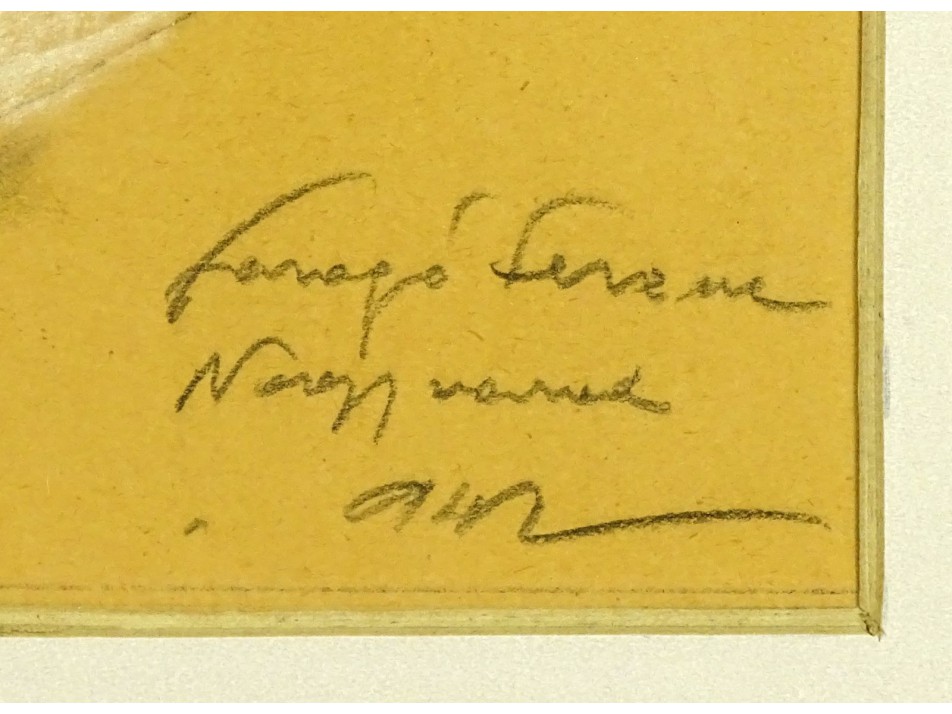 Faragó Ferenc
Nagyvárad
942